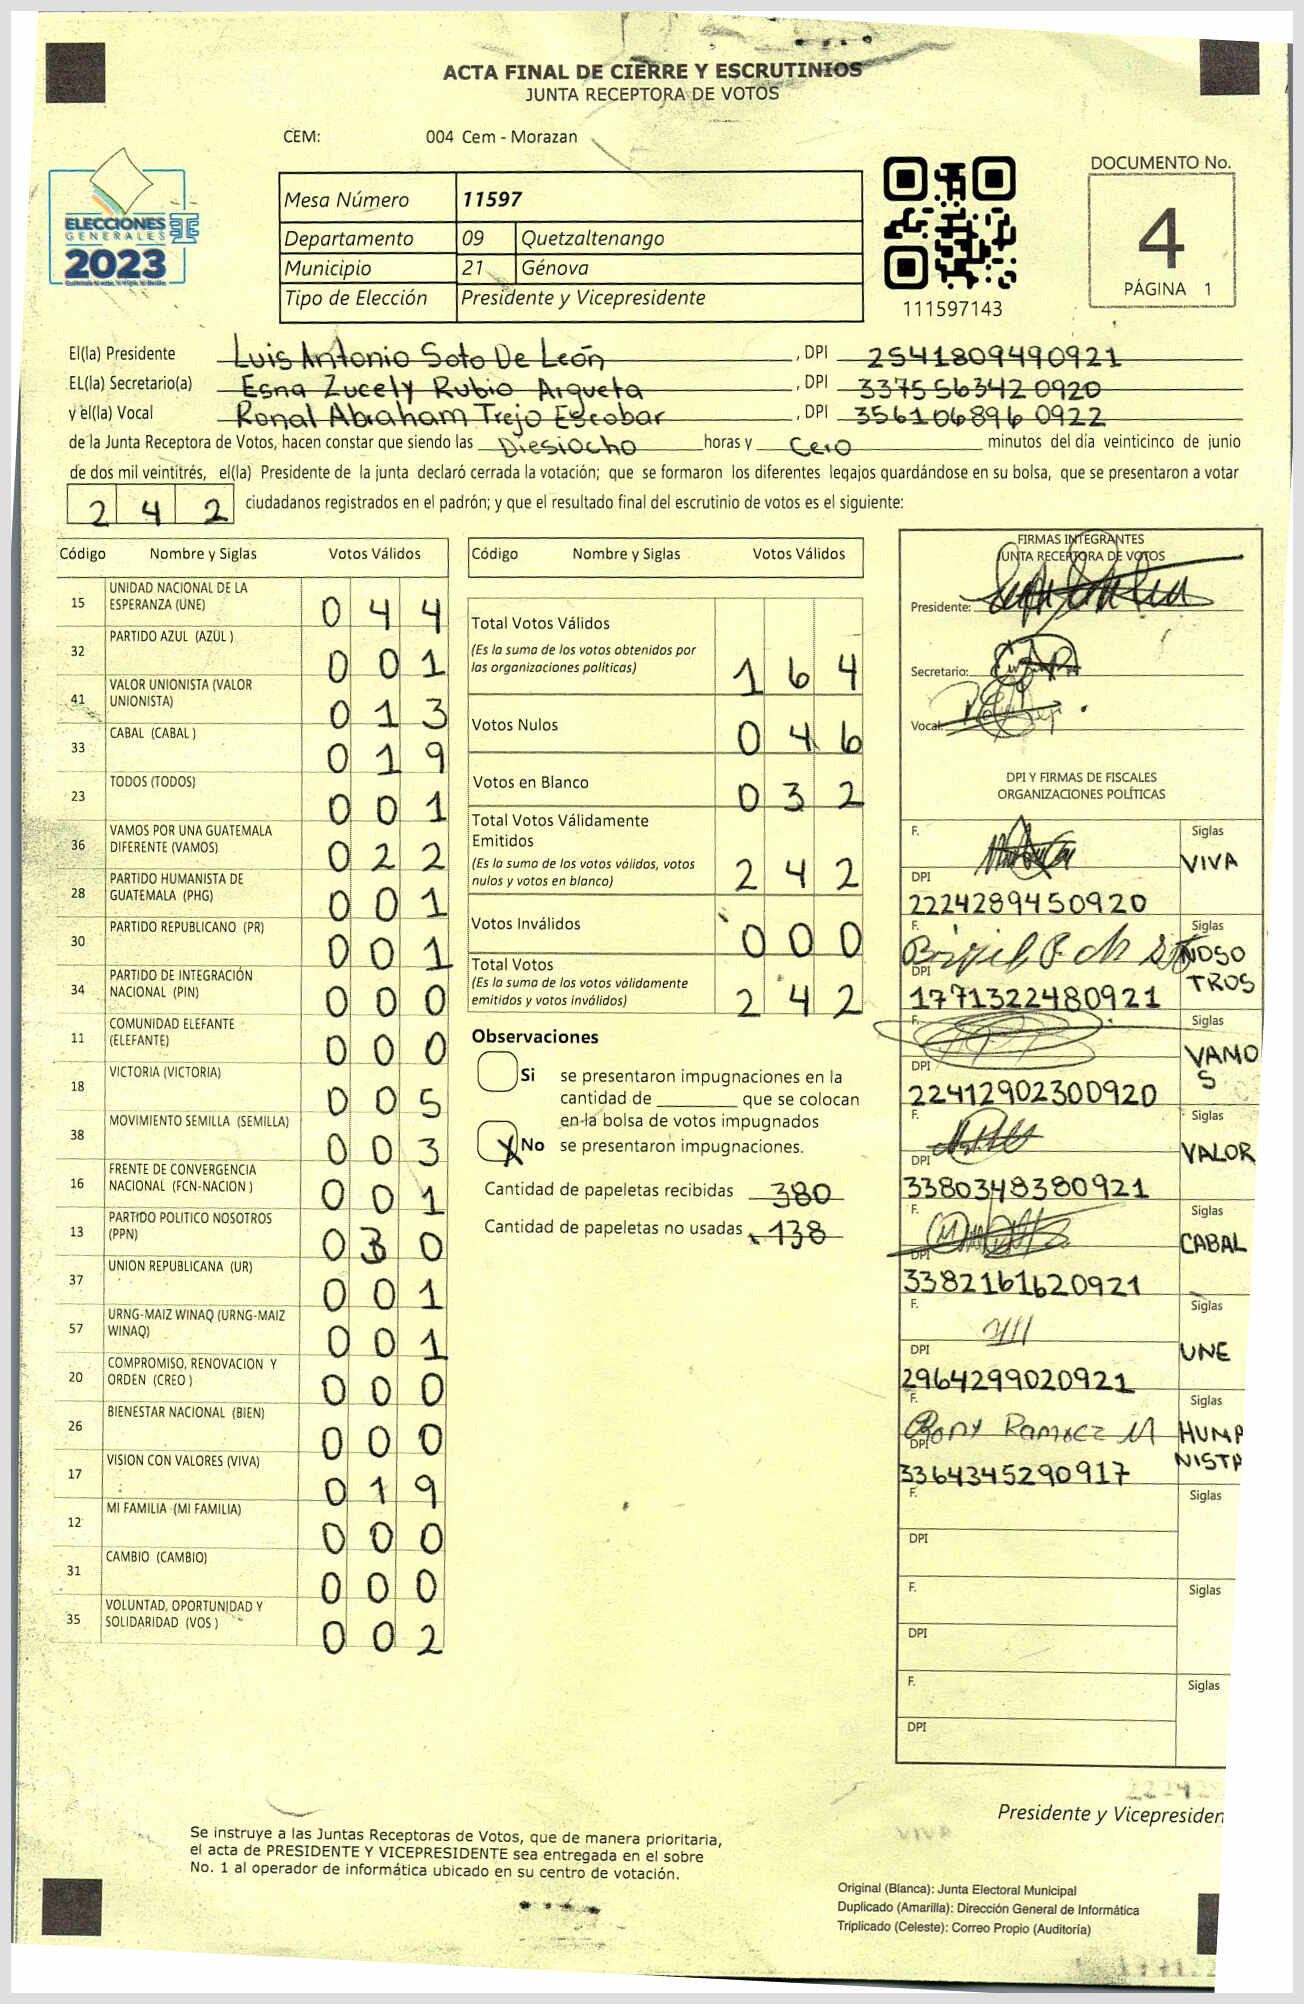 ACTA FINAL DE CIERRE Y ESCRUTINIOS
JUNTA RECEPTORA DE VOTOS
CEM: 004 Cem - Morazan
ELECCIONES
GENERALES
2023
Mesa Número 11597
Departamento 09 Quetzaltenango
Municipio 21 Génova
Tipo de Elección Presidente y Vicepresidente
111597143
DOCUMENTO No.
4
PÁGINA 1
El(la) Presidente Luis Antonio Soto De León , DPI 2541809490921
EL(la) Secretario(a) Esna Zucely Rubio Argueta , DPI 337556342 0920
y el(la) Vocal Ronal Abraham Trejo Escobar , DPI 356106896 0922
de la Junta Receptora de Votos, hacen constar que siendo las Diesiocho horas y Cero minutos del día veinticinco de junio
de dos mil veintitrés, el(la) Presidente de la junta declaró cerrada la votación; que se formaron los diferentes legajos guardándose en su bolsa, que se presentaron a votar
2 4 2 ciudadanos registrados en el padrón; y que el resultado final del escrutinio de votos es el siguiente:
Código Nombre y Siglas Votos Válidos
15 UNIDAD NACIONAL DE LA ESPERANZA (UNE) 0 4 4
32 PARTIDO AZUL (AZUL ) 0 0 1
41 VALOR UNIONISTA (VALOR UNIONISTA) 0 1 3
33 CABAL (CABAL ) 0 1 9
23 TODOS (TODOS) 0 0 1
36 VAMOS POR UNA GUATEMALA DIFERENTE (VAMOS) 0 2 2
28 PARTIDO HUMANISTA DE GUATEMALA (PHG) 0 0 1
30 PARTIDO REPUBLICANO (PR) 0 0 1
34 PARTIDO DE INTEGRACIÓN NACIONAL (PIN) 0 0 0
11 COMUNIDAD ELEFANTE (ELEFANTE) 0 0 0
18 VICTORIA (VICTORIA) 0 0 5
38 MOVIMIENTO SEMILLA (SEMILLA) 0 0 3
16 FRENTE DE CONVERGENCIA NACIONAL (FCN-NACION ) 0 0 1
13 PARTIDO POLITICO NOSOTROS (PPN) 0 3 0
37 UNION REPUBLICANA (UR) 0 0 1
57 URNG-MAIZ WINAQ (URNG-MAIZ WINAQ) 0 0 1
20 COMPROMISO, RENOVACION Y ORDEN (CREO ) 0 0 0
26 BIENESTAR NACIONAL (BIEN) 0 0 0
17 VISION CON VALORES (VIVA) 0 1 9
12 MI FAMILIA (MI FAMILIA) 0 0 0
31 CAMBIO (CAMBIO) 0 0 0
35 VOLUNTAD, OPORTUNIDAD Y SOLIDARIDAD (VOS ) 0 0 2
Código Nombre y Siglas Votos Válidos
Total Votos Válidos
(Es la suma de los votos obtenidos por
las organizaciones políticas) 1 6 4
Votos Nulos 0 4 6
Votos en Blanco 0 3 2
Total Votos Válidamente
Emitidos
(Es la suma de los votos válidos, votos
nulos y votos en blanco) 2 4 2
Votos Inválidos 0 0 0
Total Votos
(Es la suma de los votos válidamente
emitidos y votos inválidos) 2 4 2
Observaciones
Si se presentaron impugnaciones en la
cantidad de ________ que se colocan
en la bolsa de votos impugnados
X No se presentaron impugnaciones.
Cantidad de papeletas recibidas 380
Cantidad de papeletas no usadas 138
FIRMAS INTEGRANTES
JUNTA RECEPTORA DE VOTOS
Presidente:
Secretario:
Vocal:
DPI Y FIRMAS DE FISCALES
ORGANIZACIONES POLÍTICAS
F. Siglas
VIVA
DPI
2224289450920
F. Siglas
NOSO
TROS
DPI
1771322480921
F. Siglas
VAMO
S
DPI
22412902300920
F. Siglas
VALOR
DPI
3380348380921
F. Siglas
CABAL
DPI
3382161620921
F. Siglas
UNE
DPI
2964299020921
F. Siglas
Rony Ramirez M
HUMA
NISTA
DPI
3364345290917
F. Siglas
DPI
F. Siglas
DPI
F. Siglas
DPI
Presidente y Vicepresiden
VIVA
Se instruye a las Juntas Receptoras de Votos, que de manera prioritaria,
el acta de PRESIDENTE Y VICEPRESIDENTE sea entregada en el sobre
No. 1 al operador de informática ubicado en su centro de votación.
Original (Blanca): Junta Electoral Municipal
Duplicado (Amarilla): Dirección General de Informática
Triplicado (Celeste): Correo Propio (Auditoría)